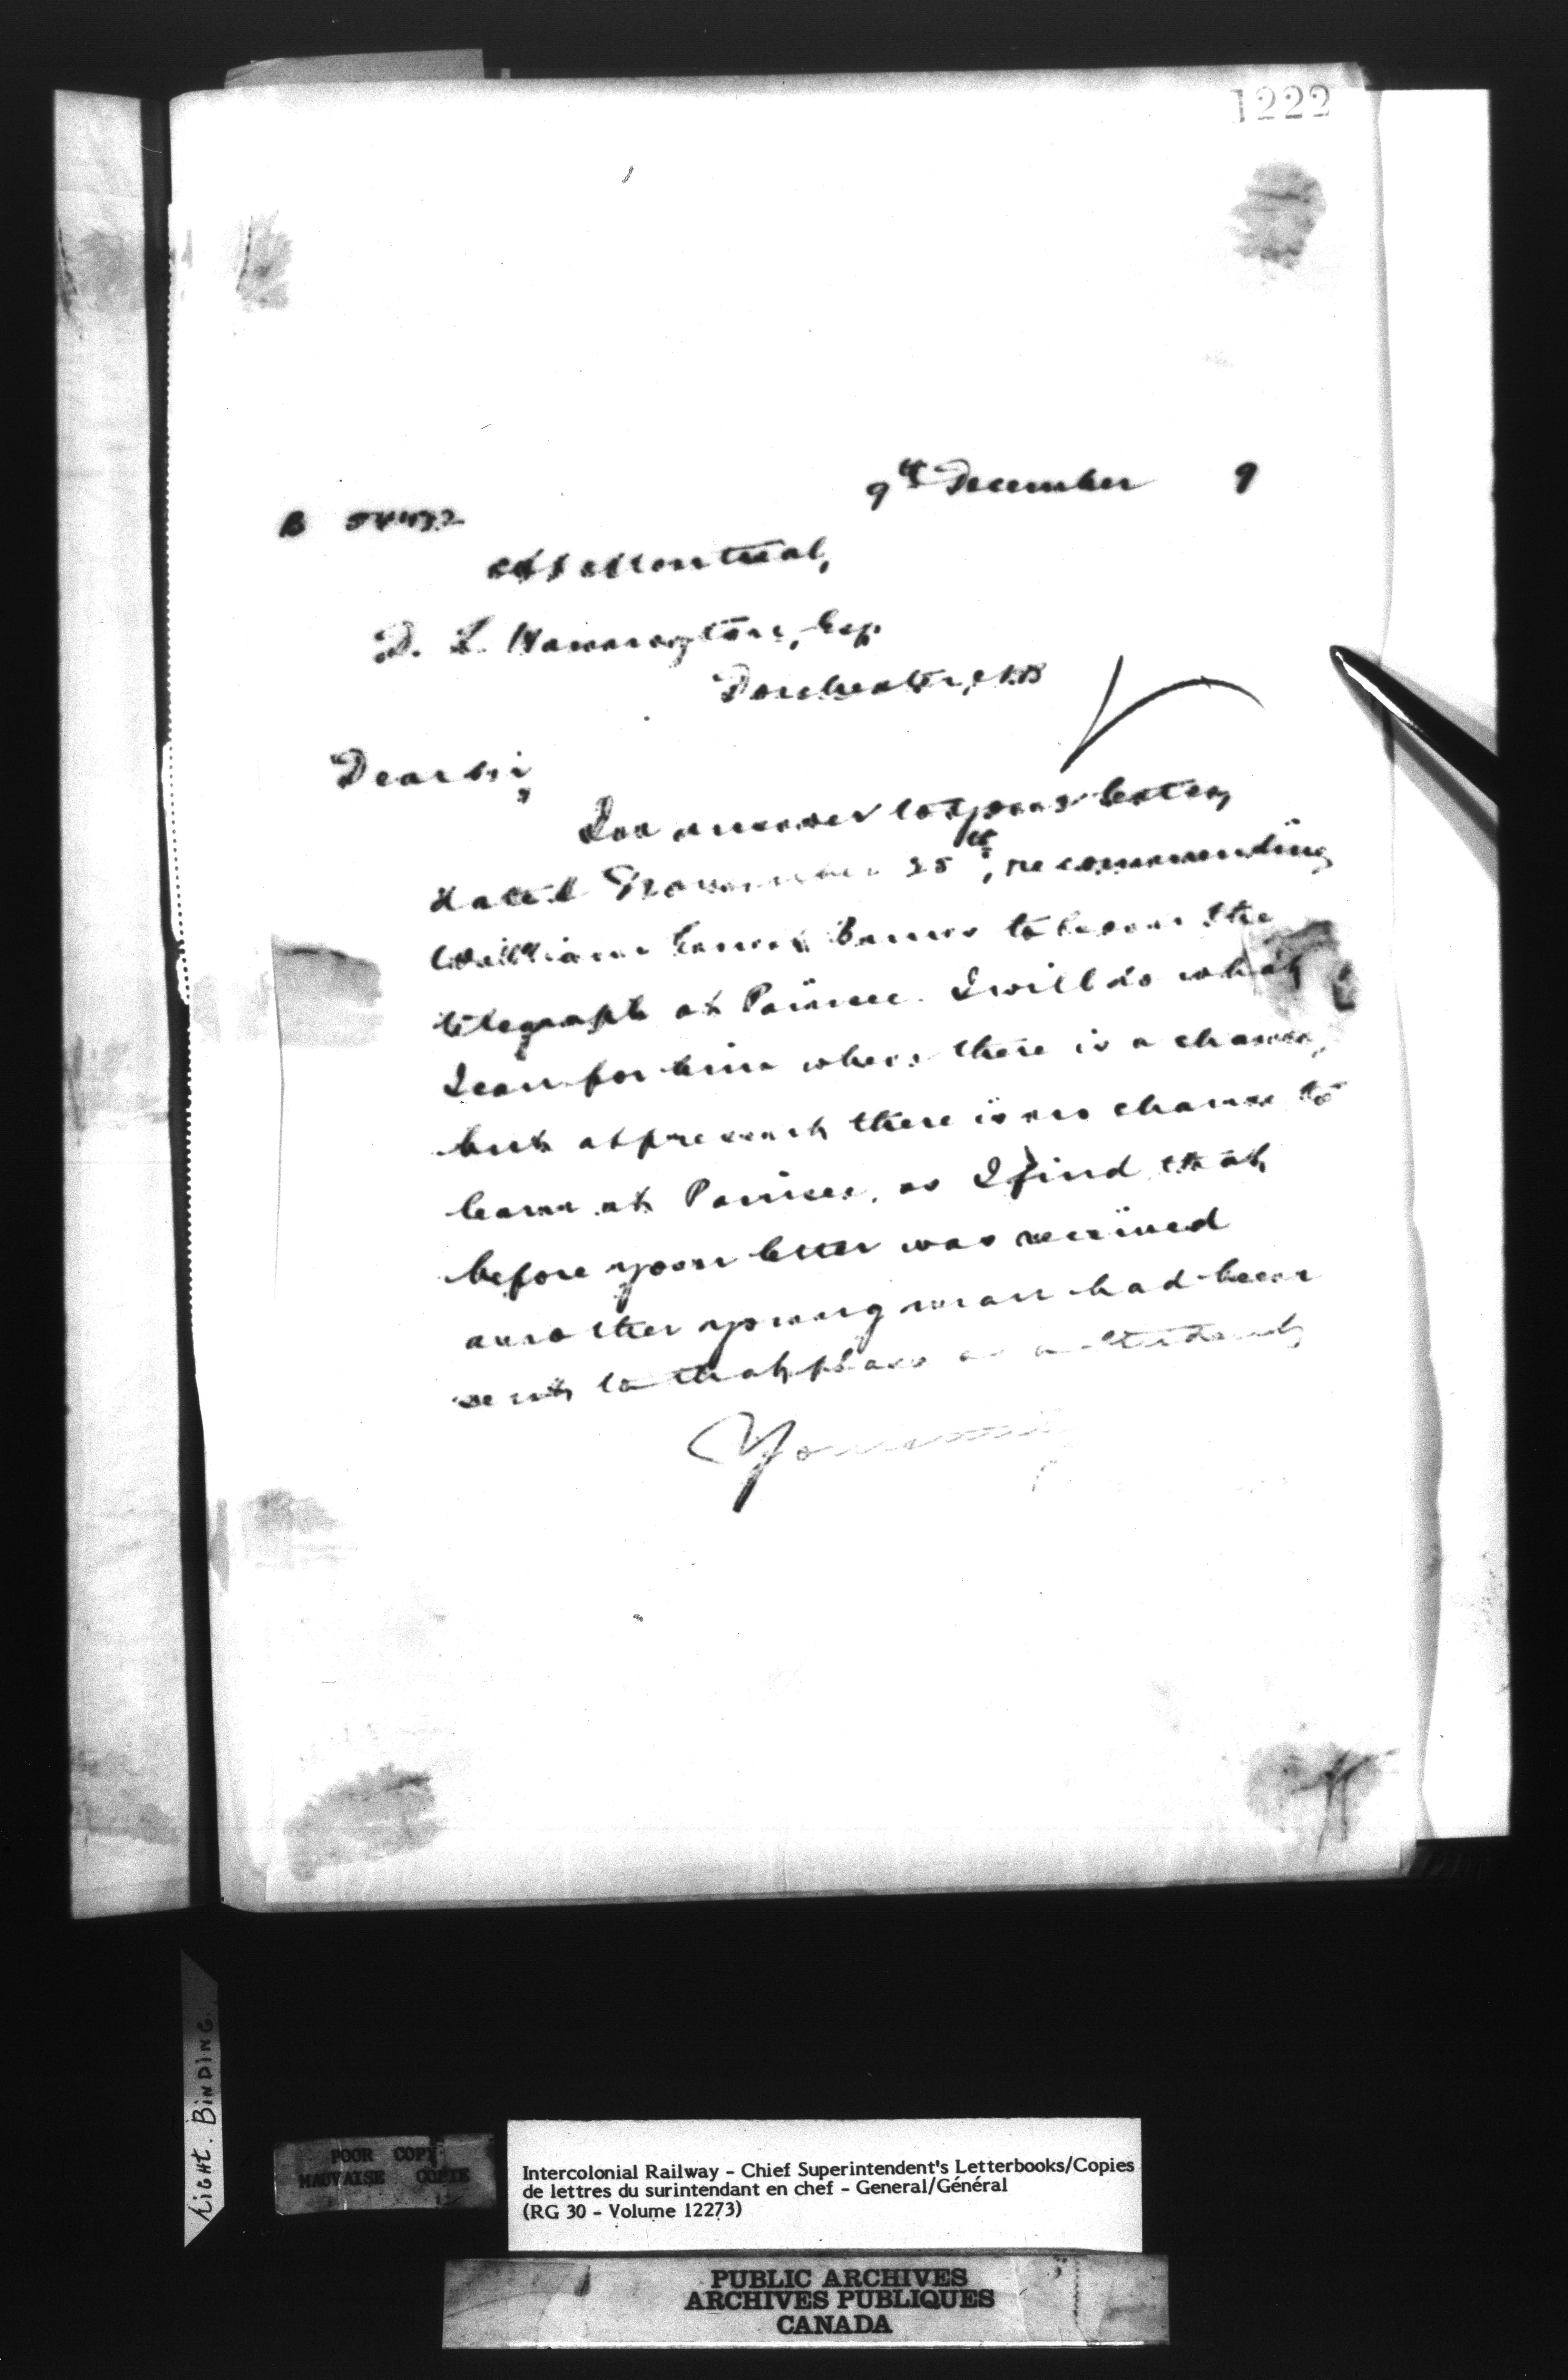 1222
9th December 9
B
At Montreal,
D. L. Hanington, Esq.
Dorchester, N.B
Dear Sir,
In answer to your letter
dated November 25th, recommending
William to learn the
telegraph at Painsec. I will do what
I can for him when there is a chance,
but at present there is no chance to
learn at Painsec, as I find that
before your letter was received
another young man had been
sent to that place as a student
Yours
LIGHT. BINDING.
POOR COPY
MAUVAISE COPIE
Intercolonial Railway - Chief Superintendent's Letterbooks/Copies
de lettres du surintendant en chef - General/Général
(RG 30 - Volume 12273)
PUBLIC ARCHIVES
ARCHIVES PUBLIQUES
CANADA